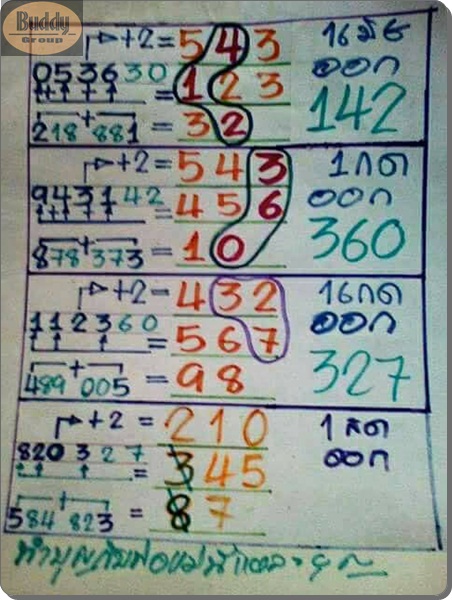 Buddy
Group
+2 = 5 4 3
16 มิย
053630 = 1 2 3
ออก
218 + 881 = 3 2
142
+2 = 5 4 3
1 กค
943142 = 4 5 6
ออก
878 + 373 = 1 0
360
+2 = 4 3 2
16 กค
112360 = 5 6 7
ออก
489 + 005 = 9 8
327
+2 = 2 1 0
1 สค
820327 = 3 4 5
ออก
584 + 823 = 8 7